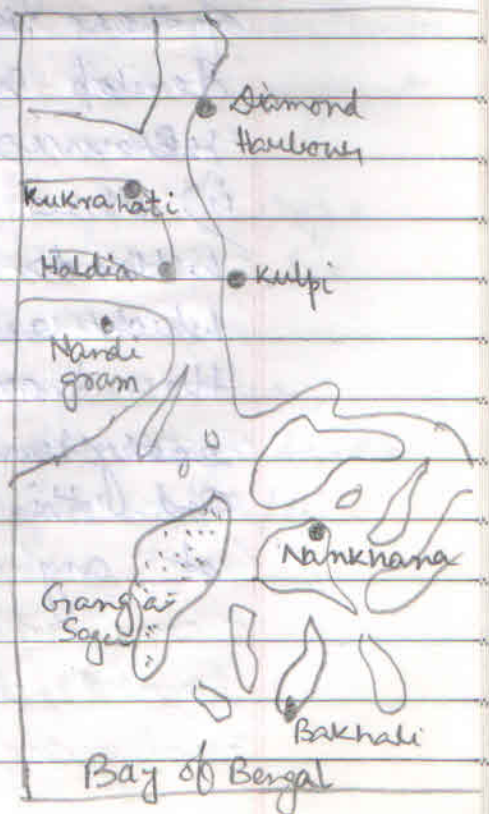 Diamond
Harbour
Kukrahati
Haldia
Kulpi
Nandi
gram
Namkhana
Ganga
Sagar
Bakhali
Bay of Bengal